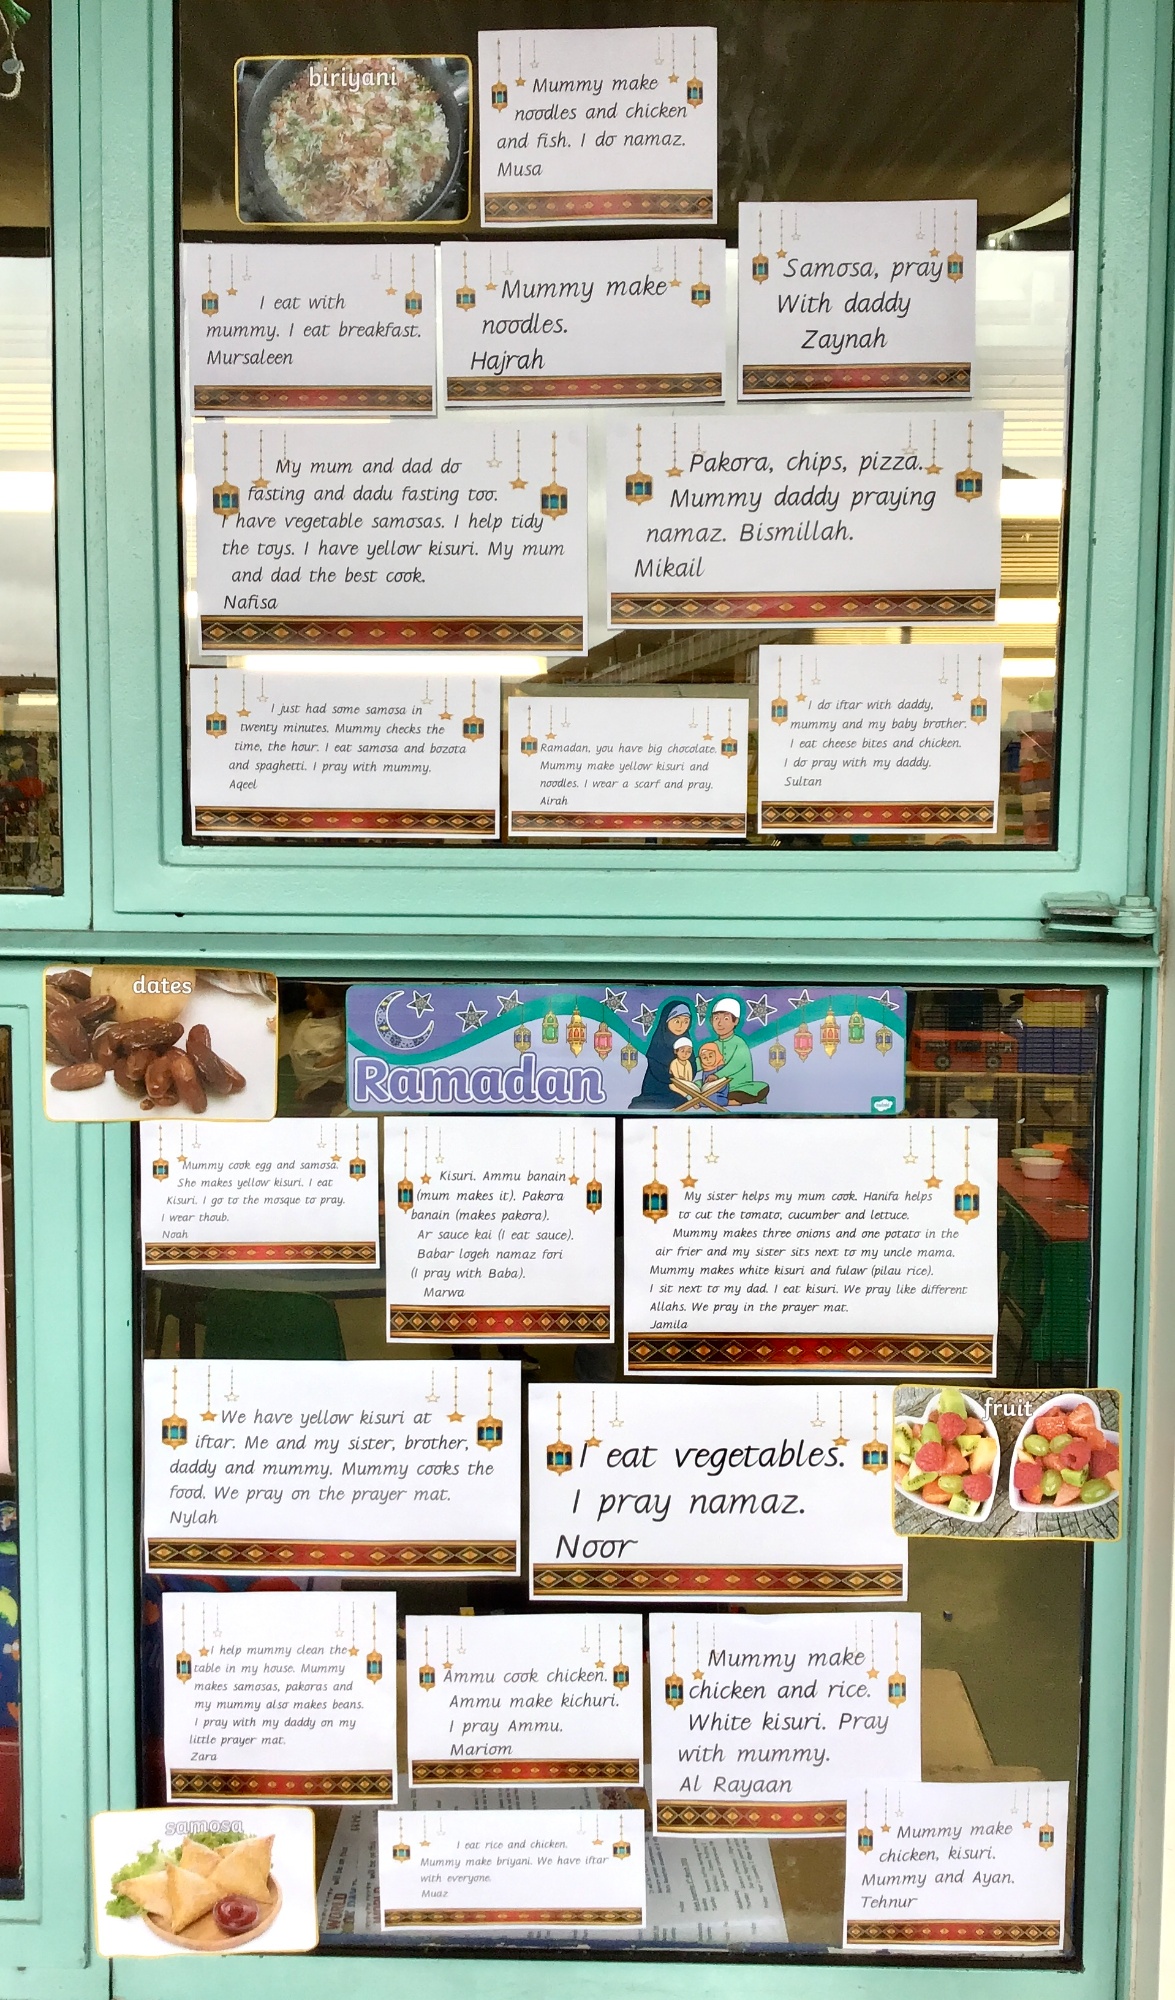 biriyani
Mummy make
noodles and chicken
and fish. I do namaz.
Musa
I eat with
mummy. I eat breakfast.
Mursaleen
Mummy make
noodles.
Hajrah
Samosa, pray
With daddy
Zaynah
My mum and dad do
fasting and dadu fasting too.
I have vegetable samosas. I help tidy
the toys. I have yellow kisuri. My mum
and dad the best cook.
Nafisa
Pakora, chips, pizza.
Mummy daddy praying
namaz. Bismillah.
Mikail
I just had some samosa in
twenty minutes. Mummy checks the
time, the hour. I eat samosa and bozota
and spaghetti. I pray with mummy.
Aqeel
Ramadan, you have big chocolate.
Mummy make yellow kisuri and
noodles. I wear a scarf and pray.
Airah
I do iftar with daddy,
mummy and my baby brother.
I eat cheese bites and chicken.
I do pray with my daddy.
Sultan
dates
Ramadan
Mummy cook egg and samosa.
She makes yellow kisuri. I eat
Kisuri. I go to the mosque to pray.
I wear thoub.
Noah
Kisuri. Ammu banain
(mum makes it). Pakora
banain (makes pakora).
Ar sauce kai (I eat sauce).
Babar logeh namaz fori
(I pray with Baba).
Marwa
My sister helps my mum cook. Hanifa helps
to cut the tomato, cucumber and lettuce.
Mummy makes three onions and one potato in the
air frier and my sister sits next to my uncle mama.
Mummy makes white kisuri and fulaw (pilau rice).
I sit next to my dad. I eat kisuri. We pray like different
Allahs. We pray in the prayer mat.
Jamila
We have yellow kisuri at
iftar. Me and my sister, brother,
daddy and mummy. Mummy cooks the
food. We pray on the prayer mat.
Nylah
I eat vegetables.
I pray namaz.
Noor
fruit
I help mummy clean the
table in my house. Mummy
makes samosas, pakoras and
my mummy also makes beans.
I pray with my daddy on my
little prayer mat.
Zara
Ammu cook chicken.
Ammu make kichuri.
I pray Ammu.
Mariom
Mummy make
chicken and rice.
White kisuri. Pray
with mummy.
Al Rayaan
samosa
I eat rice and chicken.
Mummy make briyani. We have iftar
with everyone.
Muaz
Mummy make
chicken, kisuri.
Mummy and Ayan.
Tehnur
WORLD